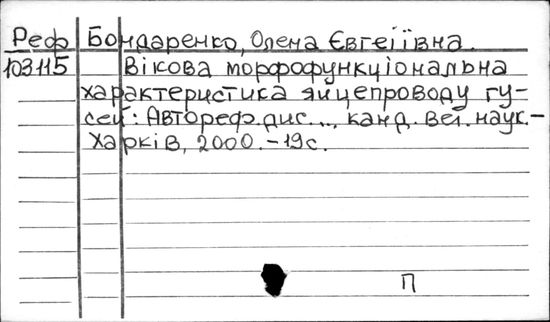 Реф Бондаренко, Олена Євгеіївна.
103115 Вікова морфофункціональна
характеристика яйцепроводу гу-
сей: Автореф.дис.... канд. вет. наук.-
Харків, 2000.-19с.
П